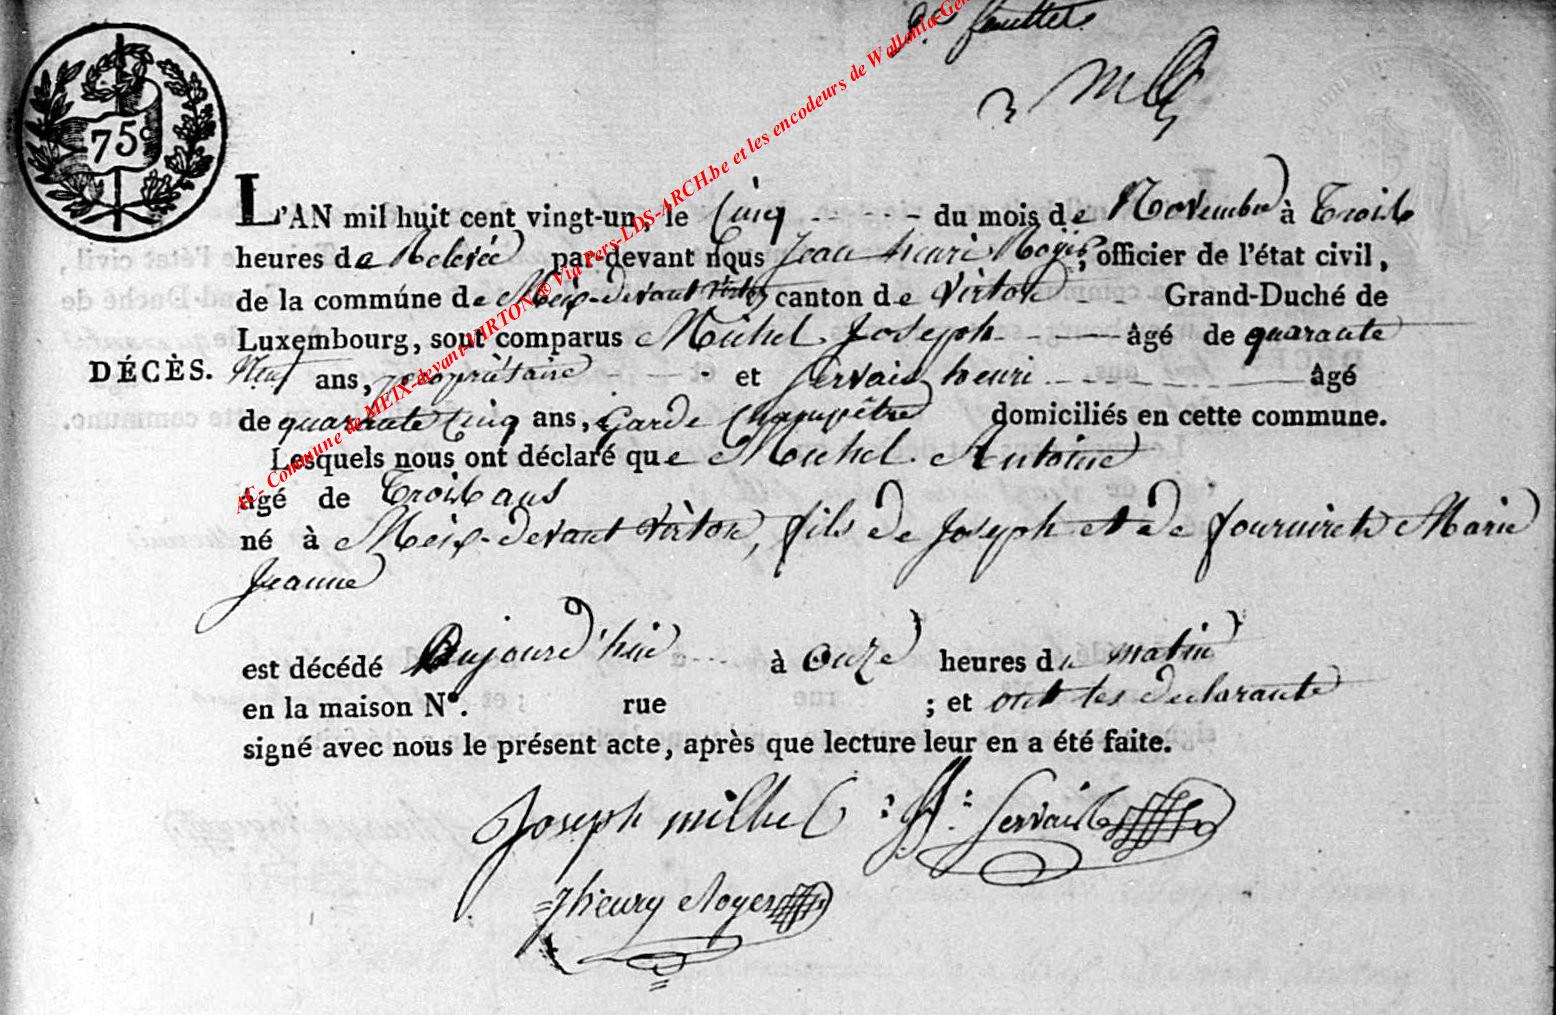 feuillet
75 c
L'AN mil huit cent vingt-un, le Cinq du mois de Novembre à Trois
heures de Relevée par-devant nous Jean henri Roger, officier de l'état civil,
de la commúne de Meix-devant Virton canton de Virton Grand-Duché de
Luxembourg, sont comparus Michel Joseph âgé de quarante
DÉCÈS. Neuf ans, propriétaire et Servais henri âgé
de quarante Cinq ans, Garde Champêtre domiciliés en cette commune.
Lesquels nous ont déclaré que Michel Antoine
âgé de Trois ans
né à Meix-devant Virton, fils de Joseph et de fourniret Marie
Jeanne
est décédé Aujourd'hui à Onze heures du matin
en la maison N°. rue ; et ont les declarants
signé avec nous le présent acte, après que lecture leur en a été faite.
Joseph milhel H: Servais
Jhenry Roger
AC- Commune de MEIX-devant-VIRTON ® Via Pers-LDS-ARCH.be et les encodeurs de Wallonia-Gen